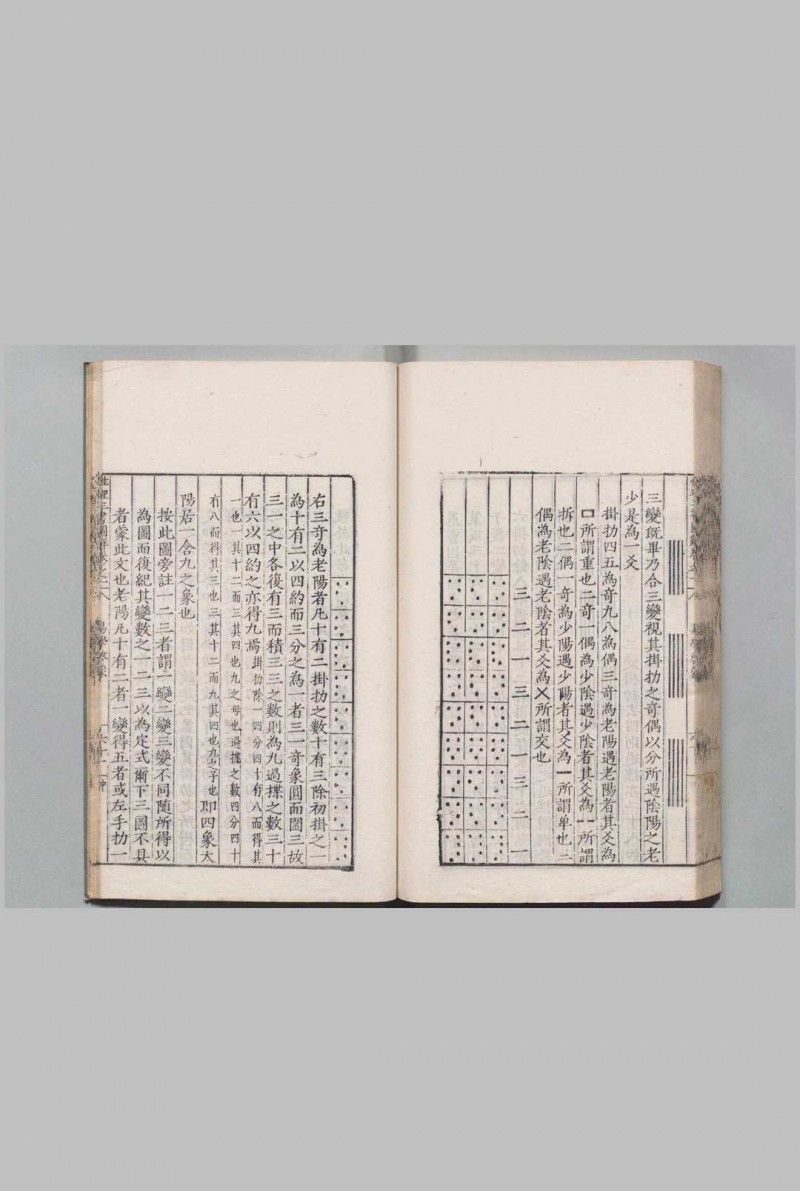 三變既畢乃合三變視其掛扐之奇偶以分所遇陰陽之老
少是為一爻
掛扐四五為奇九八為偶三奇為老陽遇老陽者其爻為
口所謂重也二奇一偶為少陰遇少陰者其爻為一所謂
拆也二偶一奇為少陽遇少陽者其爻為一所謂单也三
偶為老陰遇老陰者其爻為乂所謂交也
三二一三二一三二一
右三奇為老陽者凡十有二掛扐之數十有三除初掛之一
為十有二以四約而三分之為一者三一奇象圓而圍三故
三一之中各復有三而積三三之數則為九過揲之數三十
有六以四約之亦得九焉掛扐除一四分四十有八而得其
一也一其十二而三其四也九之母也過揲之數四分四十
有八而得其三也三其十二而九其四也九之子也即四象太
陽居一含九之象也
按此圖旁註一二三者謂一變二變三變不同隨所得以
為圖而復紀其變數之一二三以為定式爾下三圖不具
者蒙此文也老陽凡十有二者一變得五者或左手扐一